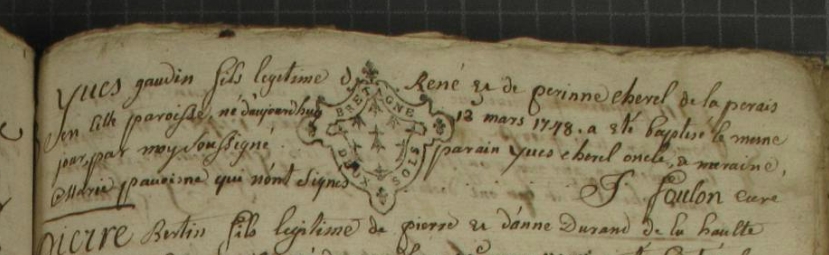 Yues gaudin fils legitime de René & de perinne cherel de la perais
en cette paroisse, né daujourdhuy 12 mars 1748. a eté baptisé le meme
jour par moy soussigné. parain yues cherel oncle, & maraine,
Marie qui nont signes J foulon cure
BRETAGNE
DEUX SOLS
pierre Bertin fils legitime de pierre & d'anne Durand de la haulte